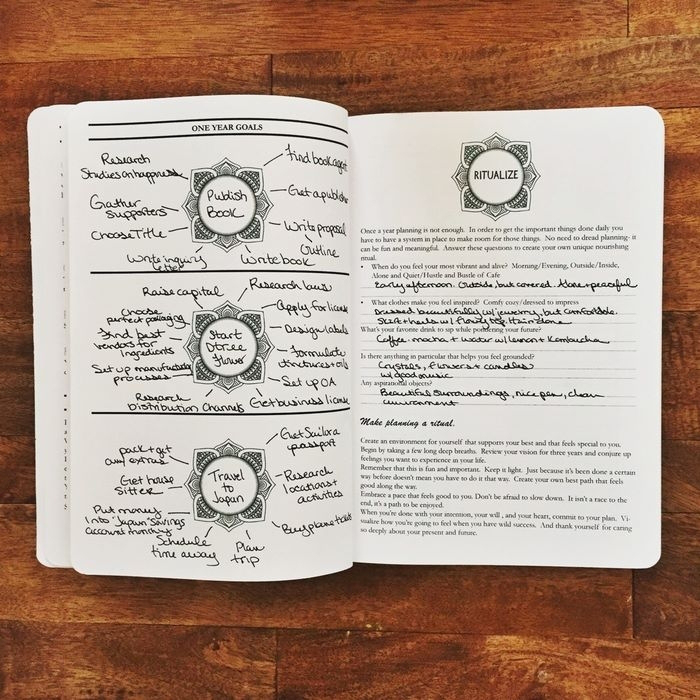 ONE YEAR GOALS
Research
Studies on happiness
Gather
supporters
Choose Title
Write inquiry
letter
Publish
Book
Find book agent
Get a publisher
Write proposal
Outline
Write book
Raise capital
Choose
perfect packaging
Find best
vendors for
ingredients
Set up manufacturing
processes
Research
Distribution Channels
Start
Flower
Research laws
Apply for license
Design labels
Formulate
tinctures + oils
Set up OA
Get business license
pack + get
any extras
Get house
sitter
Put money
Into "Japan" Savings
account monthly
Schedule
time away
Travel
to
Japan
Get Sailora
passport
Research
locations +
activities
Buy plane tickets
Plan
trip
RITUALIZE
Once a year planning is not enough. In order to get the important things done daily you
have to have a system in place to make room for those things. No need to dread planning- it
can be fun and meaningful. Answer these questions to create your own unique nourishing
ritual.
• When do you feel your most vibrant and alive? Morning/Evening, Outside/Inside,
Alone and Quiet/Hustle and Bustle of Cafe
Early afternoon. Outside, but covered. Alone + peaceful
• What clothes make you feel inspired? Comfy cozy/dressed to impress
Dressed beautifully w/ jewelry, but comfortable.
Skirt + heels w/ flowy top. Hair done
What's your favorite drink to sip while pondering your future?
Coffee-mocha + water w/ lemon + Kombucha
Is there anything in particular that helps you feel grounded?
Crystals, flowers + candles
w/ good music
Any aspirational objects?
Beautiful surroundings, nice pen, clean
environment
Make planning a ritual.
Create an environment for yourself that supports your best and that feels special to you.
Begin by taking a few long deep breaths. Review your vision for three years and conjure up
feelings you want to experience in your life.
Remember that this is fun and important. Keep it light. Just because it's been done a certain
way before doesn't mean you have to do it that way. Create your own best path that feels
good along the way.
Embrace a pace that feels good to you. Don't be afraid to slow down. It isn't a race to the
end, it's a path to be enjoyed.
When you're done with your intention, your will , and your heart, commit to your plan. Vi-
sualize how you're going to feel when you have wild success. And thank yourself for caring
so deeply about your present and future.